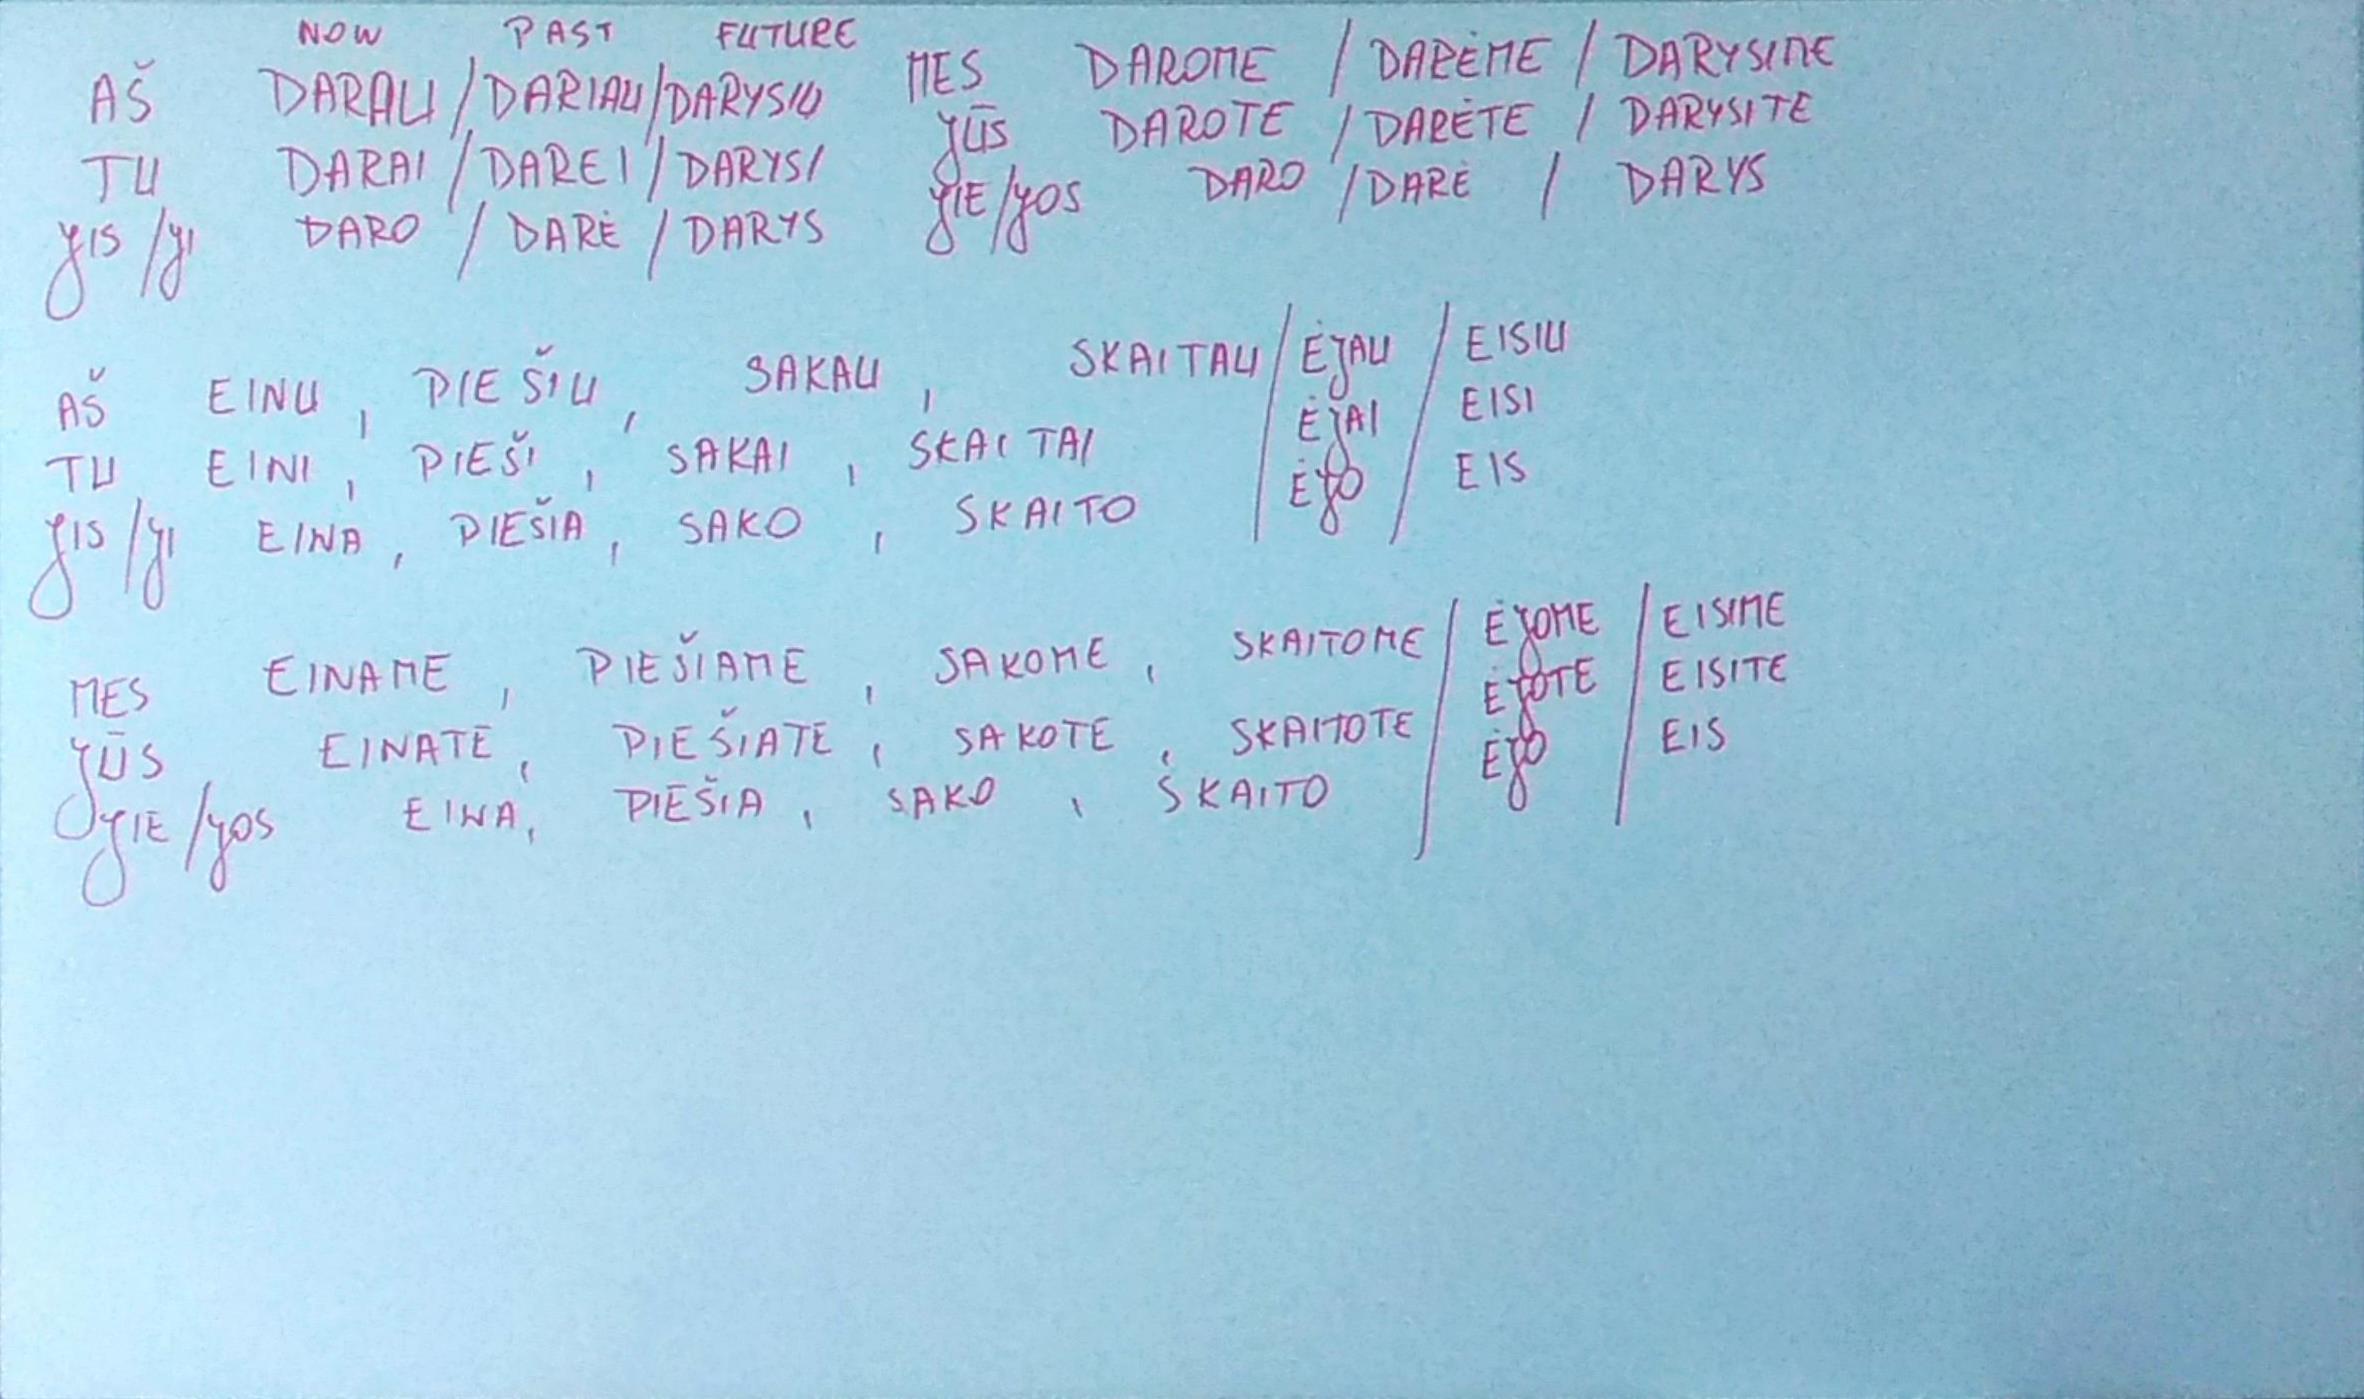 NOW PAST FUTURE
AŠ DARAU / DARIAU / DARYSIU
TU DARAI / DAREI / DARYSI
JIS / JI DARO / DARĖ / DARYS
MES DAROME / DARĖME / DARYSIME
JŪS DAROTE / DARĖTE / DARYSITE
JIE / JOS DARO / DARĖ / DARYS
AŠ EINU, PIEŠIU, SAKAU, SKAITAU / ĖJAU / EISIU
TU EINI, PIEŠI, SAKAI, SKAITAI / ĖJAI / EISI
JIS / JI EINA, PIEŠIA, SAKO, SKAITO / ĖJO / EIS
MES EINAME, PIEŠIAME, SAKOME, SKAITOME / ĖJOME / EISIME
JŪS EINATE, PIEŠIATE, SAKOTE, SKAITOTE / ĖJOTE / EISITE
JIE / JOS EINA, PIEŠIA, SAKO, SKAITO / ĖJO / EIS